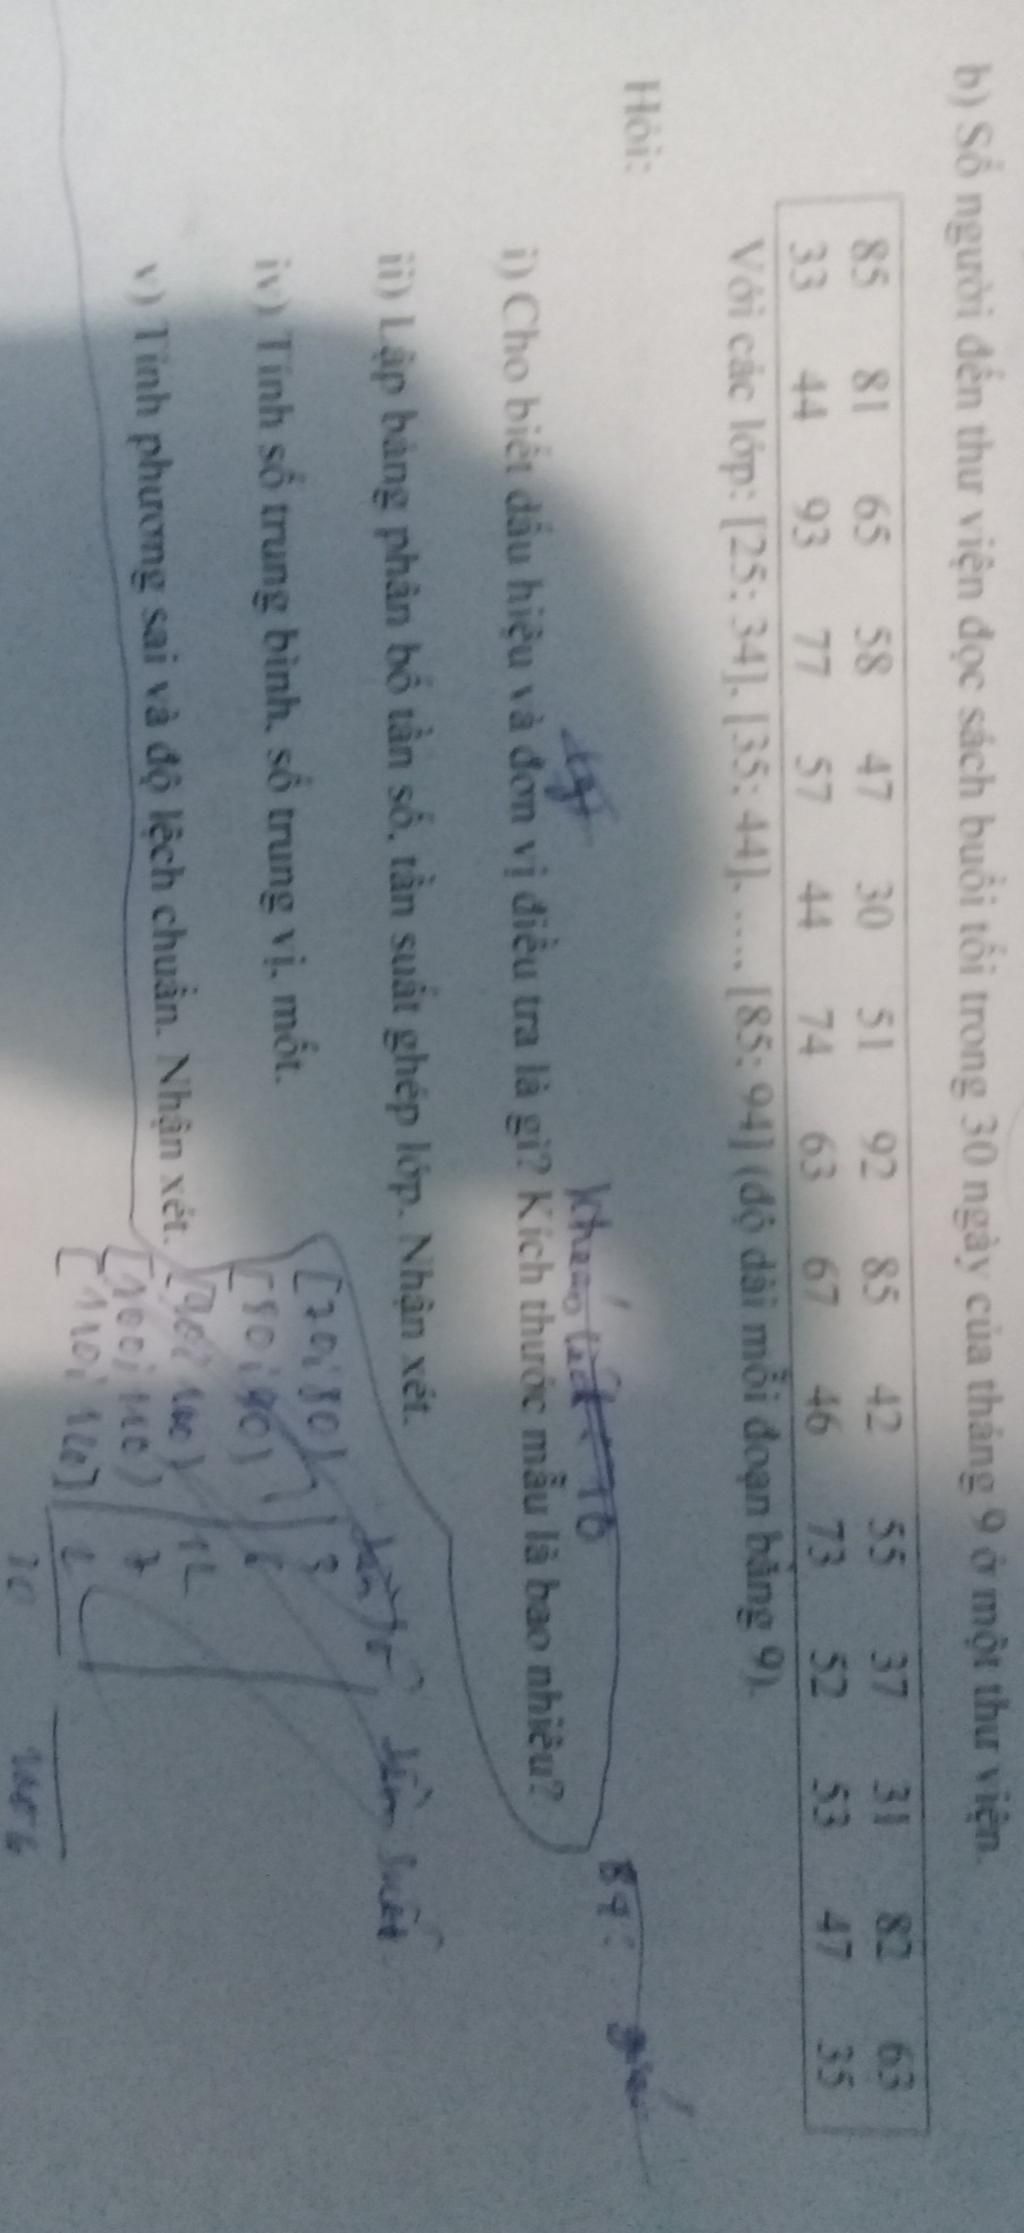 b) Số người đến thư viện đọc sách buổi tối trong 30 ngày của tháng 9 ở một thư viện.
85 81 65 58 47 30 51 92 85 42 55 37 31 82 63
33 44 93 77 57 44 74 63 67 46 73 52 53 47 35
Với các lớp: [25; 34], [35; 44], ..., [85; 94] (độ dài mỗi đoạn bằng 9).
Hỏi:
i) Cho biết dấu hiệu và đơn vị điều tra là gì? Kích thước mẫu là bao nhiêu?
ii) Lập bảng phân bố tần số, tần suất ghép lớp. Nhận xét.
iv) Tính số trung bình, số trung vị, mốt.
v) Tính phương sai và độ lệch chuẩn. Nhận xét.
tần suất
[70; 80) 3
[80; 90) 6
12
[100; 110) 7
[110; 120] 2
30